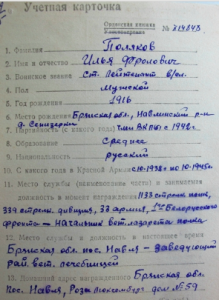 Учетная карточка
Орденская книжка
№ 314843
1. Фамилия Поляков
2. Имя и отчество Илья Фролович
3. Воинское звание Ст. лейтенант в/сл.
4. Пол Мужской
5. Год рождения 1916
6. Место рождения Брянская обл., Навлинский р-н
д.
7. Партийность (с какого года) член ВКП(б) с 1948 г.
8. Образование Среднее
9. Национальность русский
10. С какого года в Красной Армии с 10-1938 - по 10-1945 г.
11. Место службы (наименование части) и занимаемая
должность в момент награждения 1133 стрелк. полк,
339 стрелк. дивизия, 33 армия, 1го Белорусского
фронта - начальник вет. лазарета полка
12. Место службы и должность в настоящее время
Брянская обл. пос. Навля - заведующий
рай. вет. лечебницей
13. Домашний адрес награжденного Брянская обл.
пос. Навля, Розы Люксембург дом № 59